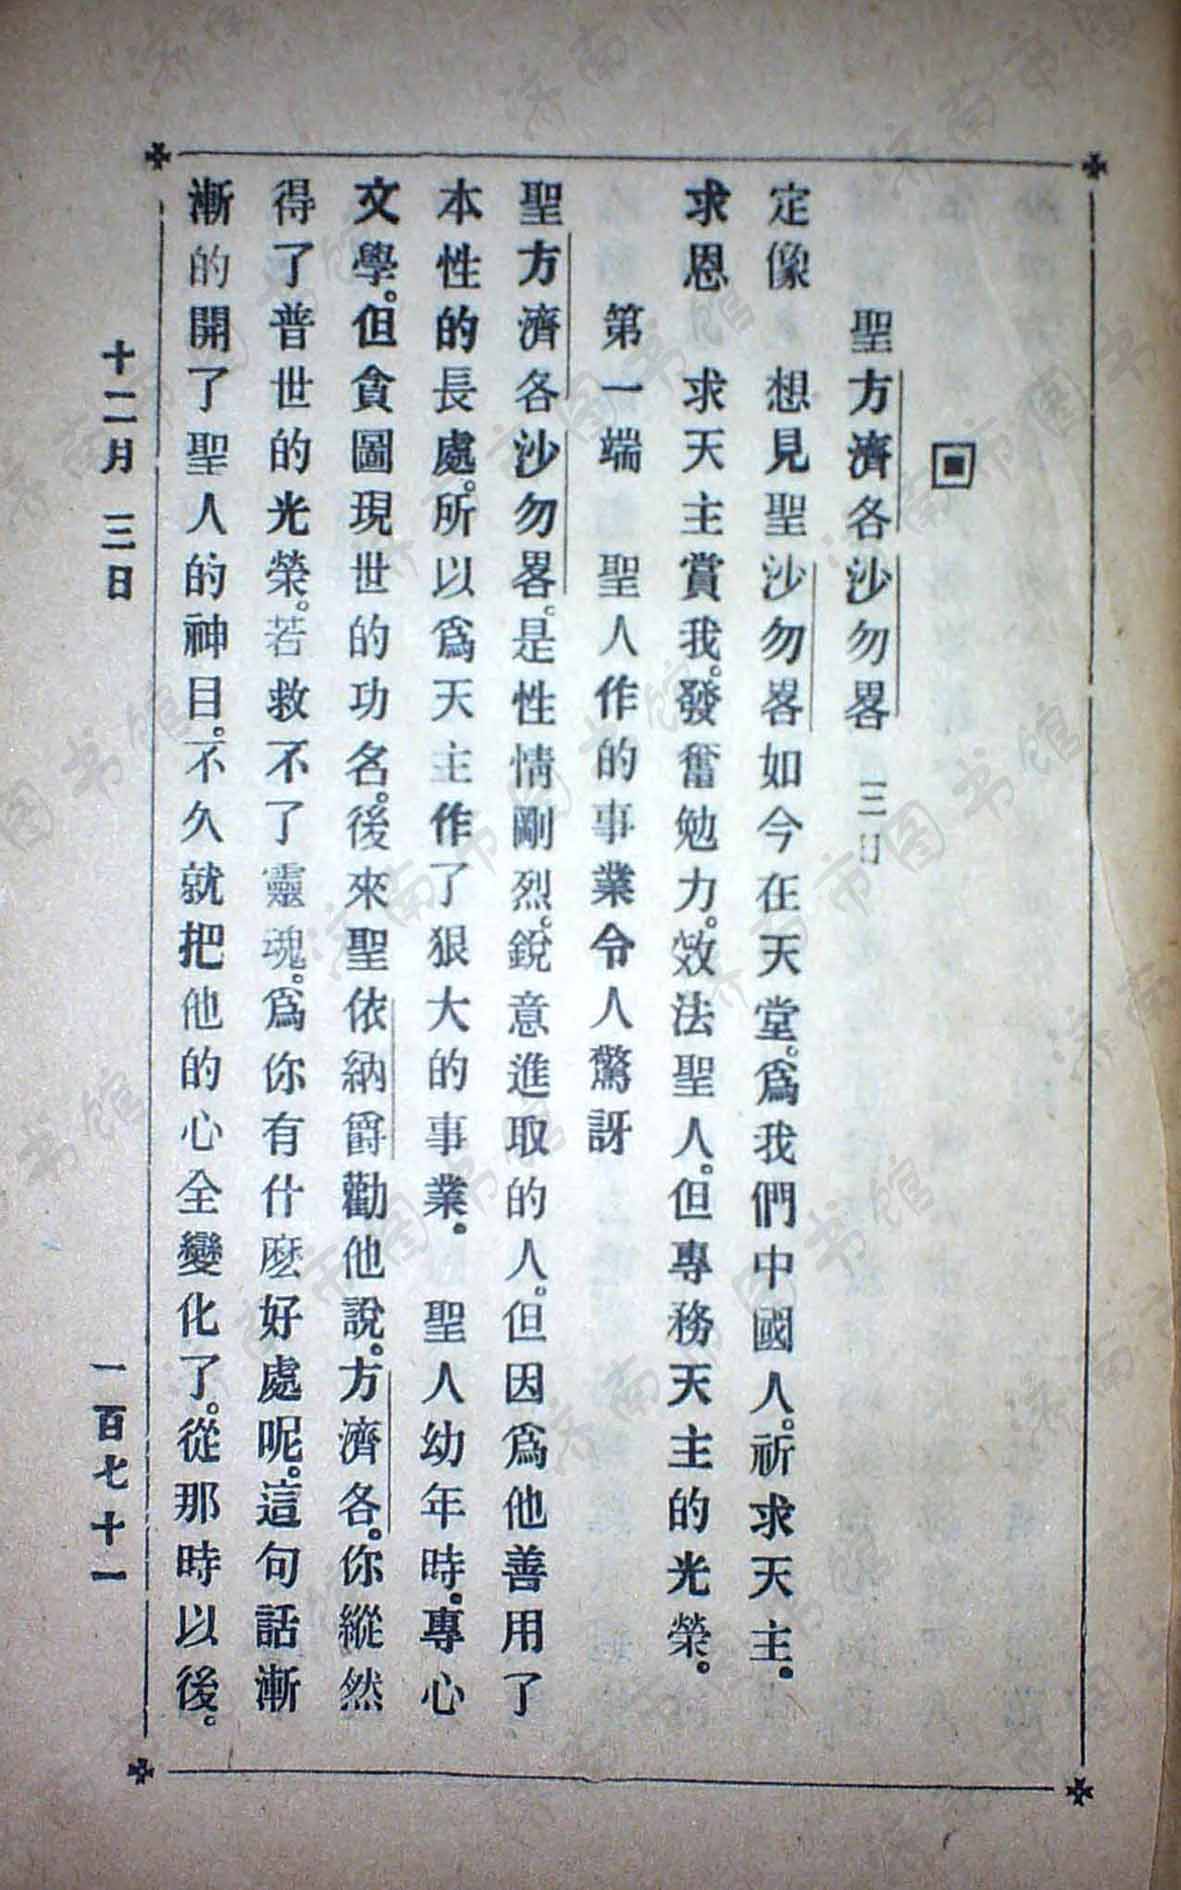 聖方濟各沙勿畧　三日
定像　想見聖沙勿畧如今在天堂。爲我們中國人。祈求天主。
求恩　求天主賞我。發奮勉力。效法聖人。但專務天主的光榮。
第一端　聖人作的事業令人驚訝
聖方濟各沙勿畧。是性情剛烈。銳意進取的人。但因爲他善用了
本性的長處。所以爲天主作了狠大的事業。　聖人幼年時。專心
文學。但貪圖現世的功名。後來聖依納爵勸他說。方濟各。你縱然
得了普世的光榮。若救不了靈魂。爲你有什麽好處呢。這句話漸
漸的開了聖人的神目。不久就把他的心全變化了。從那時以後。
十二月　三日
一百七十一
济南市图书馆